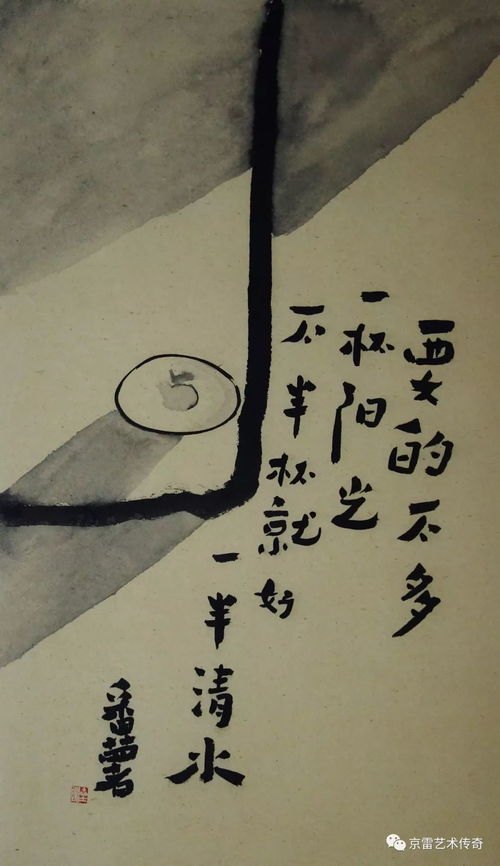 要的不多
一杯阳光
不半杯就好
一半清水
番薯
京雷艺术传奇